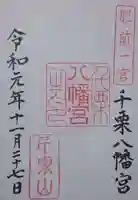 肥前一宮
千栗八幡宮
千栗
八幡宮
令和元年十一月二十七日